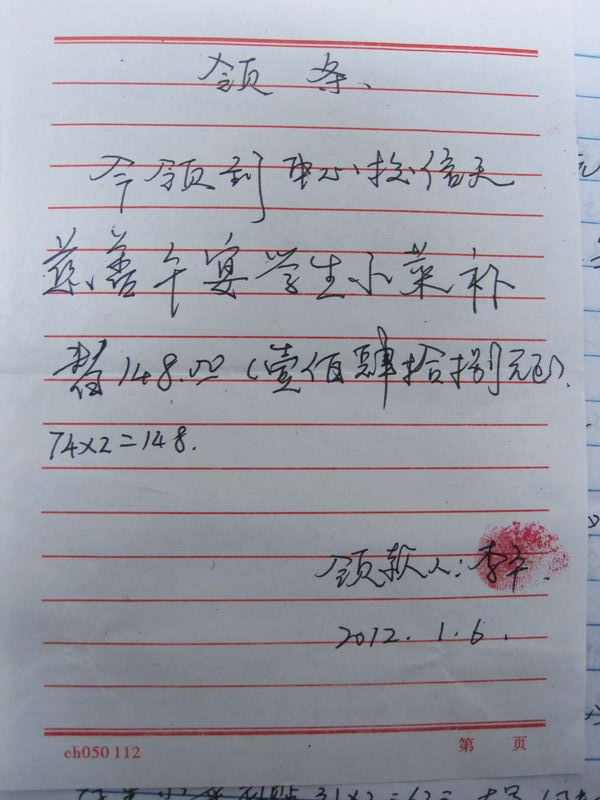 领 条、
今领到中心校倍天
慈善午宴学生小菜补
替148.00(壹佰肆拾捌元整).
74×2=148.
领款人:李
2012.1.6.
ch050112
第 页